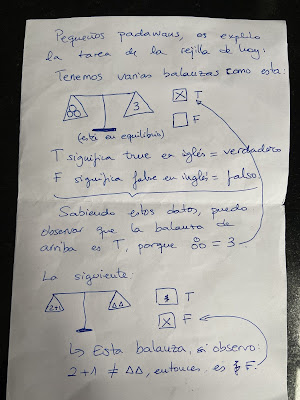 Pequeños padawans, os explico
la tarea de la rejilla de hoy:
Tenemos varias balanzas como esta:
3
X T
F
(está en equilibrio)
T significa true en inglés = verdadero
F significa false en inglés = falso
Sabiendo estos datos, puedo
observar que la balanza de
arriba es T, porque = 3
La siguiente:
2+1 ΔΔ
T
X F
↳ Esta balanza, si observo:
2+1 ≠ ΔΔ, entonces es F.